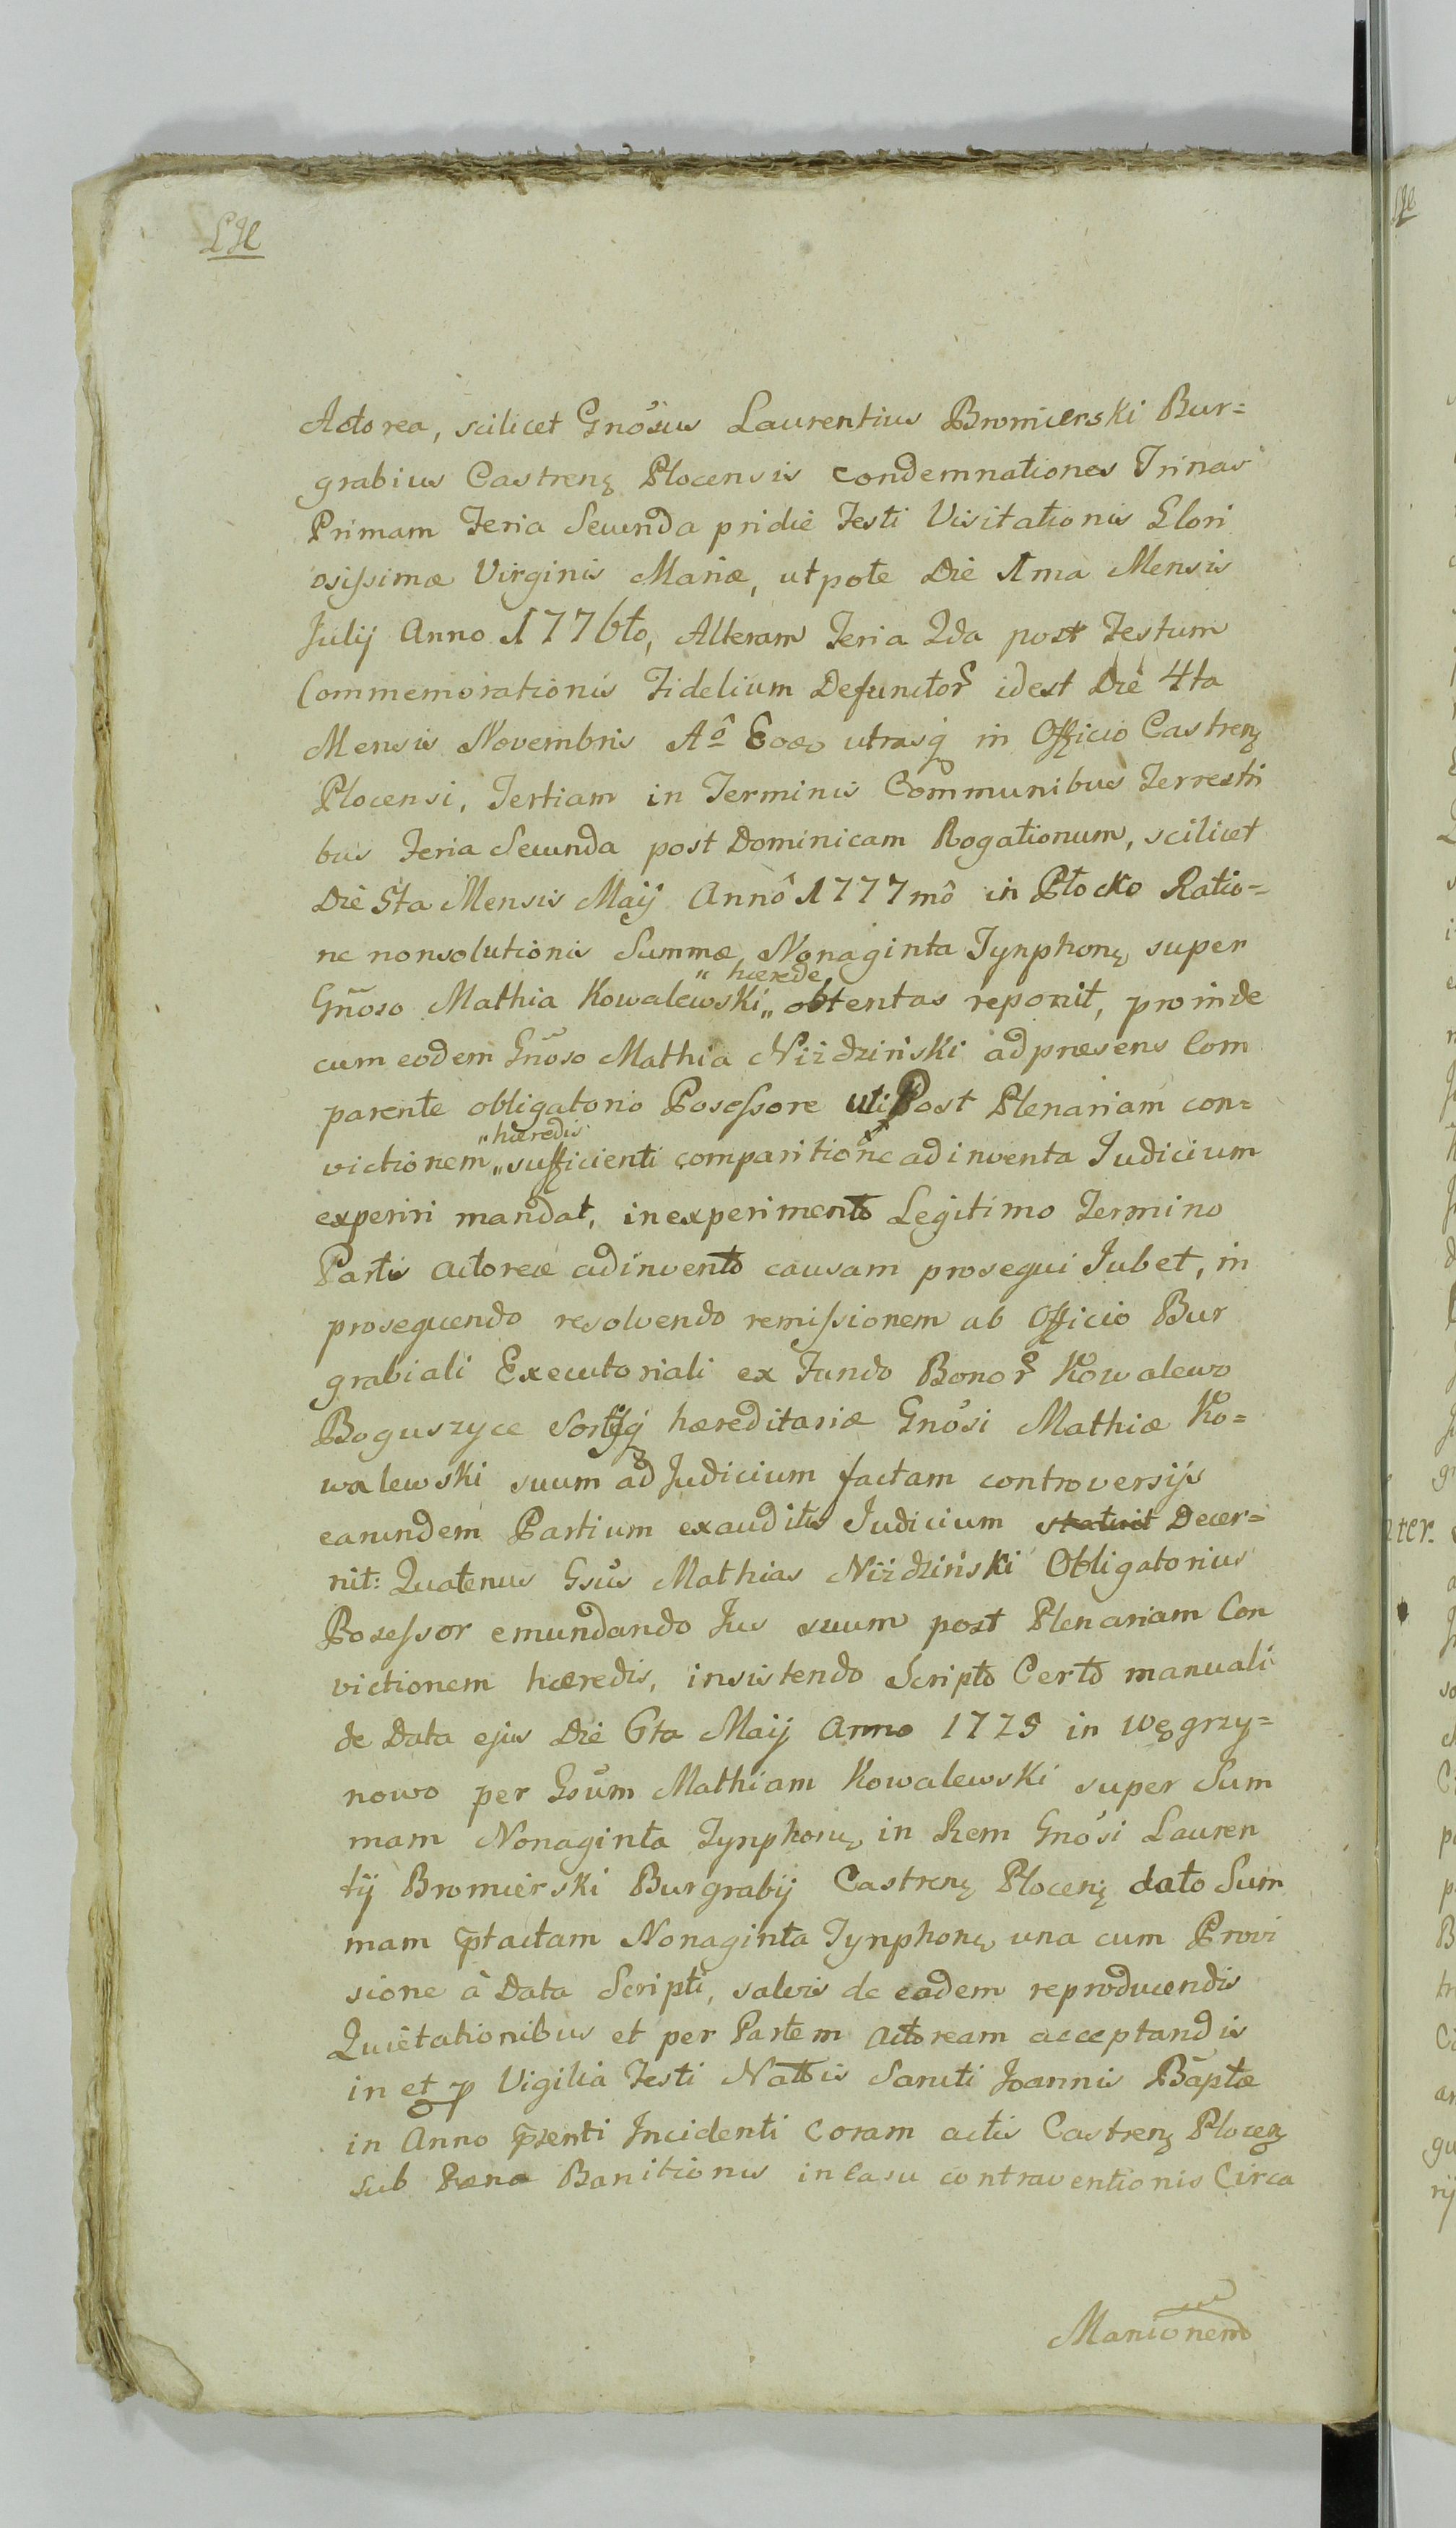 Actorea, scilicet Gnosus Laurentius Bromierski Bur=
grabius Castrens Plocensis condemnationes Trinas
Primam Feria Secunda pridie Festi Visitationis Glori
osissimæ Virginis Mariæ, utpote Die 1ma Mensis
Julij Anno 1776to, Alteram Feria 2da post Festum
Commemorationis Fidelium Defunctor idest Die 4ta
Mensis Novembris Aô Eoo utrasq in Officio Castren
Plocensi, Tertiam in Terminis Communibus Terrestri
bus Feria Secunda post Dominicam Rogationum, scilicet
Die 5ta Mensis Maij Annô 1777mô in Płocko Ratio=
ne nonsolutionis Summæ Nonaginta Tynphon super
„ hærede
Gnoso Mathia Kowalewski „ obtentas reponit, proinde
cum eodem Gnoso Mathia Niździński adpræsens Com
parente obligatorio Posessore uti Post Plenariam con=
„hæredis
victionem „ sufficienti comparitione adinventa Judicium
experiri mandat, inexperimento Legitimo Termino
Partis actoreæ adinvento causam prosequi Jubet, in
prosequendo resolvendo remissionem ab Officio Bur
grabiali Executoriali ex Fundo Bonor Kowalewo
Boguszyce hæreditariæ Gnosi Mathiæ Ko=
walewski suum ad Judicium factam controversijs
earundem Partium exauditis Judicium statuit Decer=
nit: Quatenus Gsus Mathias Niździński Obligatorius
Posessor emundando Jus suum post Plenariam Con
victionem hæredis, insistendo Scripto Certo manuali
de Data ejus Die 6ta Maij Anno 1775 in Węgrzy=
nowo per Gsum Mathiam Kowalewski super Sum
mam Nonaginta Tynphon in Rem Gnosi Lauren
tij Bromierski Burgrabij Castren Plocen dato Sum
mam ptactam Nonaginta Tynphon una cum Provi
sione à Data Scripti, salvis de eadem reproducendis
Quietationibus et per Partem Actoream acceptandis
in et p Vigilia Festi Nattis Sancti Joannis Baptæ
in Anno pzenti Incidenti coram actis Castren Plocen
sub Pæna Banitionis in Casu contraventionis Circa
Manionem